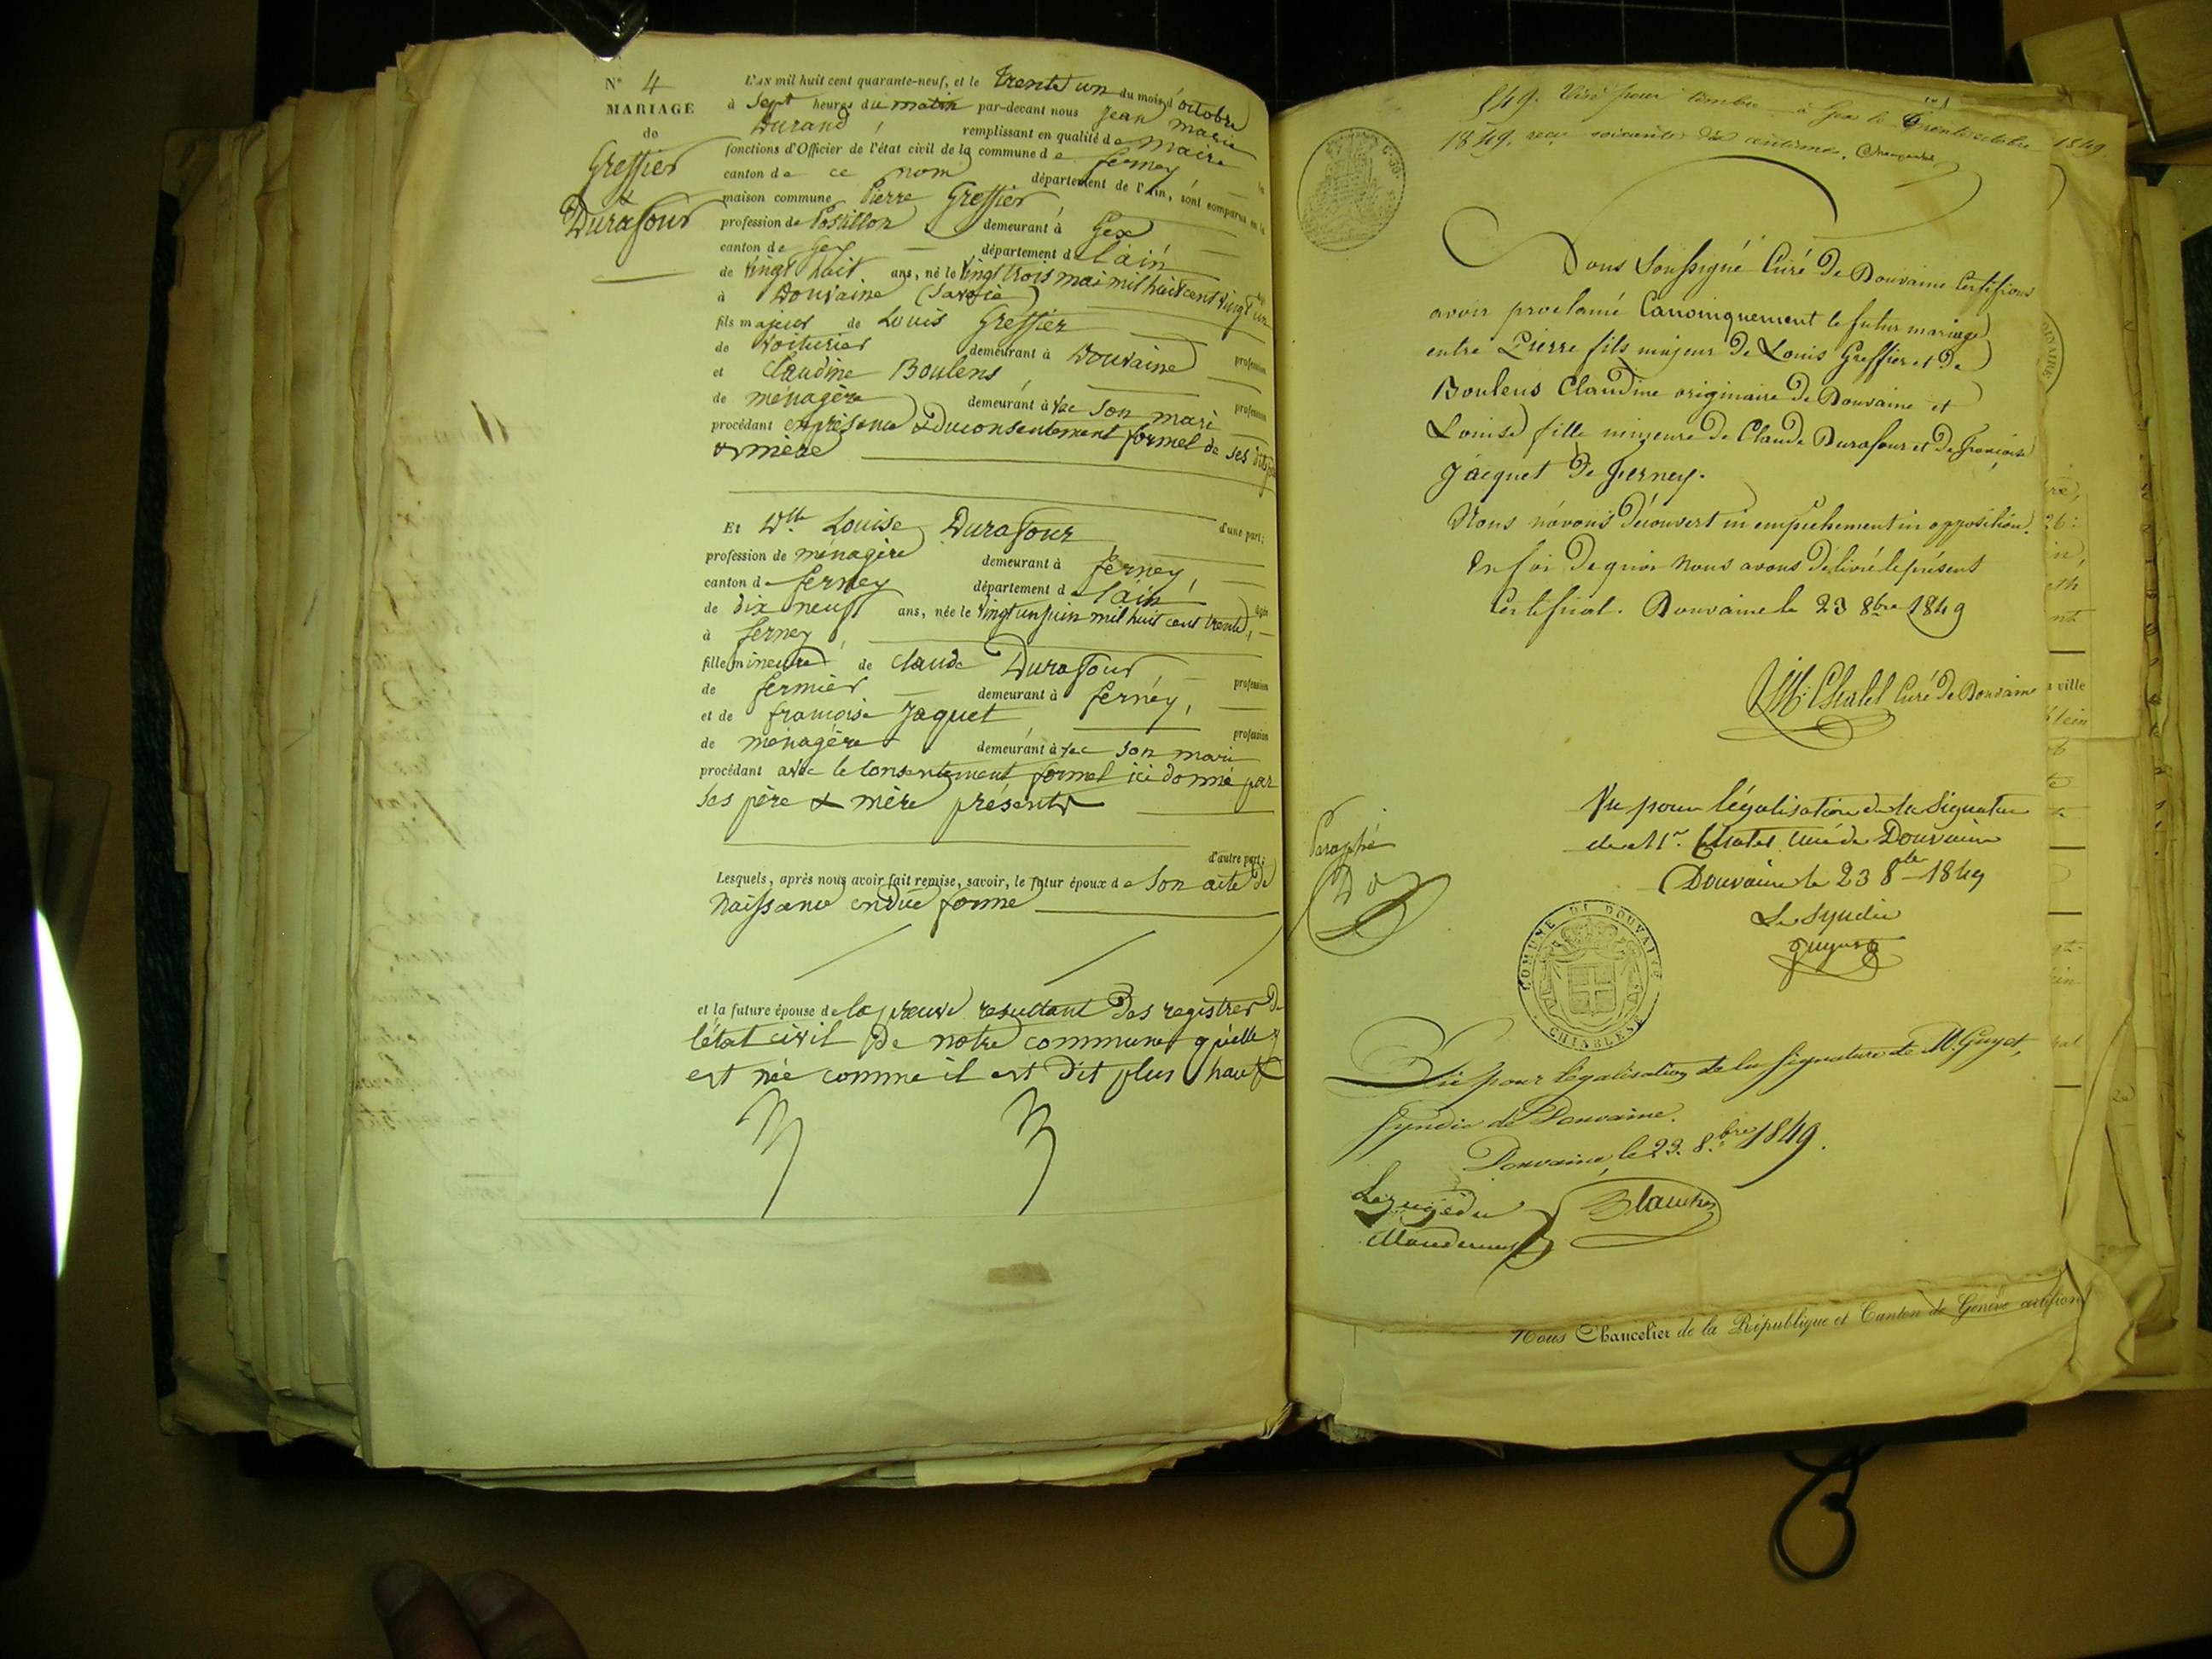 N° 4
MARIAGE
de
Greffier
&
Durafour
L'an mil huit cent quarante-neuf, et le trente un du mois d'octobre
à sept heures du matin par-devant nous Jean Marie
Durand, remplissant en qualité de maire
fonctions d'Officier de l'état civil de la commune de ferney
canton de ce nom département de l'Ain, sont comparus en la
maison commune Pierre Greffier
profession de Postillon demeurant à Gex
canton de Gex département de l'ain
de vingt huit ans, né le vingt trois mai mil huit cent vingt un
à Douvaine (Savoie)
fils majeur de Louis Greffier profession
de voiturier demeurant à Douvaine
et Claudine Boulens profession
de ménagère demeurant avec son mari
procédant en présence & du consentement formel de ses dits père
& mère
d'une part;
Et Dlle Louise Durafour
profession de ménagère demeurant à ferney,
canton de ferney département de l'ain âgée
de dix neuf ans, née le vingt un juin mil huit cent trente,
à ferney,
fille mineure de claude Durafour profession
de fermier demeurant à ferney,
et de françoise Jaquet profession
de ménagère demeurant avec son mari
procédant avec le consentement formel ici donné par
ses père & mère présents
d'autre part;
Lesquels, après nous avoir fait remise, savoir, le futur époux de son acte de
naissance en due forme
et la future épouse de la preuve resultant des registres de
l'état civil de notre commune qu'elle y
est née comme il est dit plus haut
849. Visé pour timbre à Gex le trente octobre 1849.
1849. reçu soixante dix centimes.
Nous Soussigné Curé de Douvaine Certifions
avoir proclamé Canoniquement le futur mariage
entre Pierre fils majeur de Louis Greffier et de
Boulens Claudine originaire de Douvaine et
Louise fille mineure de Claude Durafour et de françoise
Jacquet de Ferney.
Nous n'avons découvert ni empêchement ni opposition.
En foi de quoi Nous avons délivré le présent
Certificat. Douvaine le 23 8bre 1849
Chatel Curé de Douvaine
Vu pour légalisation de la Signature
de Mr. Chatel curé de Douvaine
Douvaine le 23 8bre 1849
Le Syndic
Guyot
Paraphé
COMMUNE DI DOUVAINE
CHIABLESE
Vu pour légalisation de la signature de M. Guyot,
syndic de Douvaine.
Douvaine, le 23. 8.bre 1849.
Le juge du
Mandement
Nous Chancelier de la République et Canton de Genève certifions